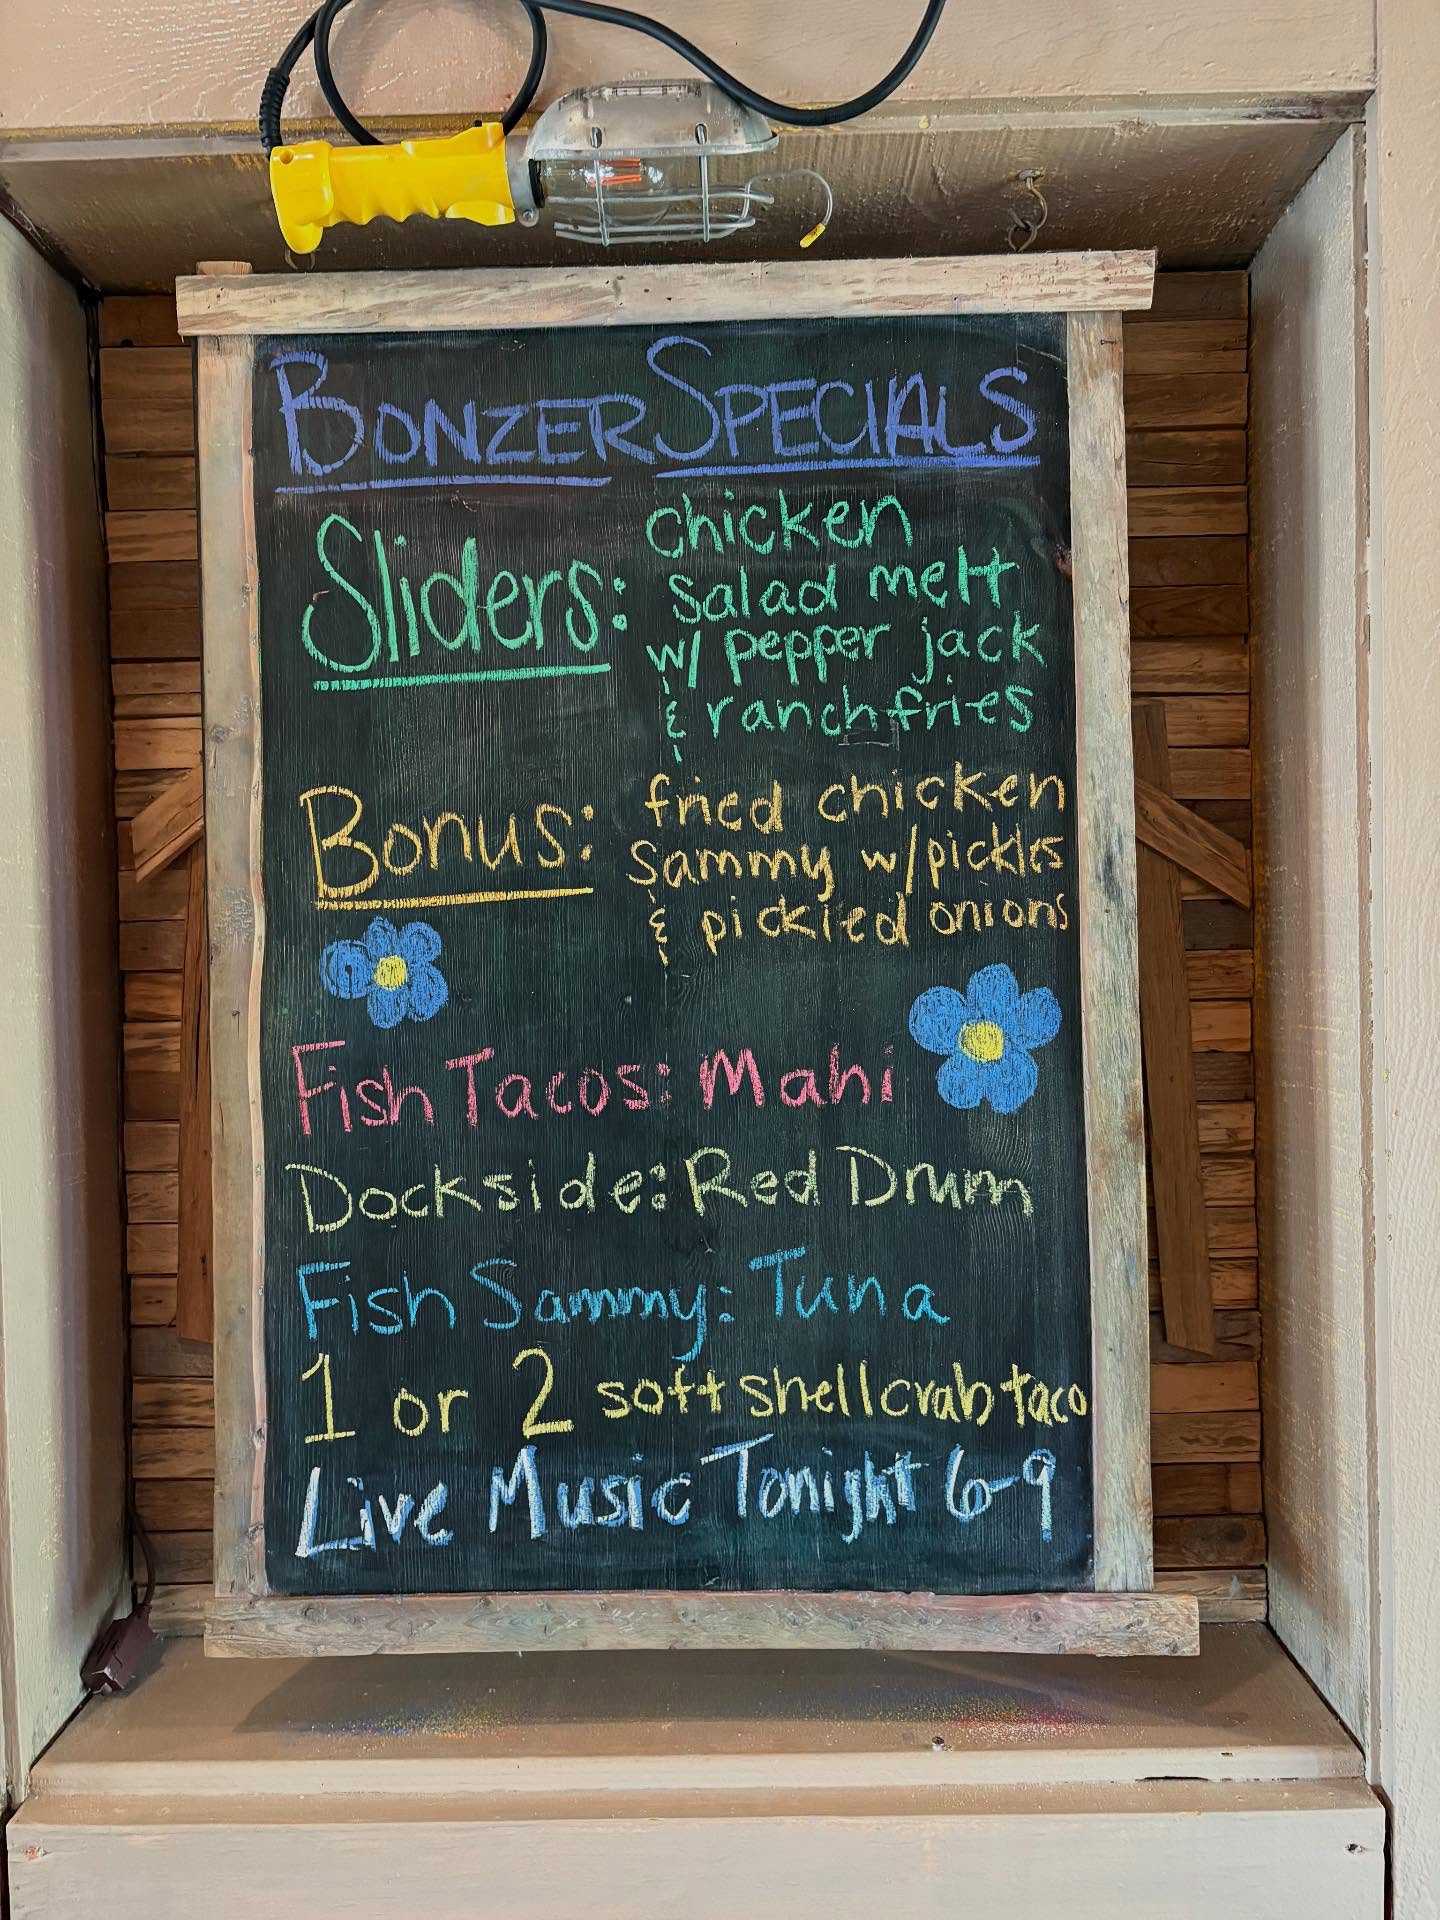 BONZER SPECIALS
Sliders: chicken
salad melt
w/ pepper jack
& ranch fries
Bonus: fried chicken
sammy w/pickles
& pickled onions
Fish Tacos: Mahi
Dockside: Red Drum
Fish Sammy: Tuna
1 or 2 soft shell crab taco
Live Music Tonight 6-9